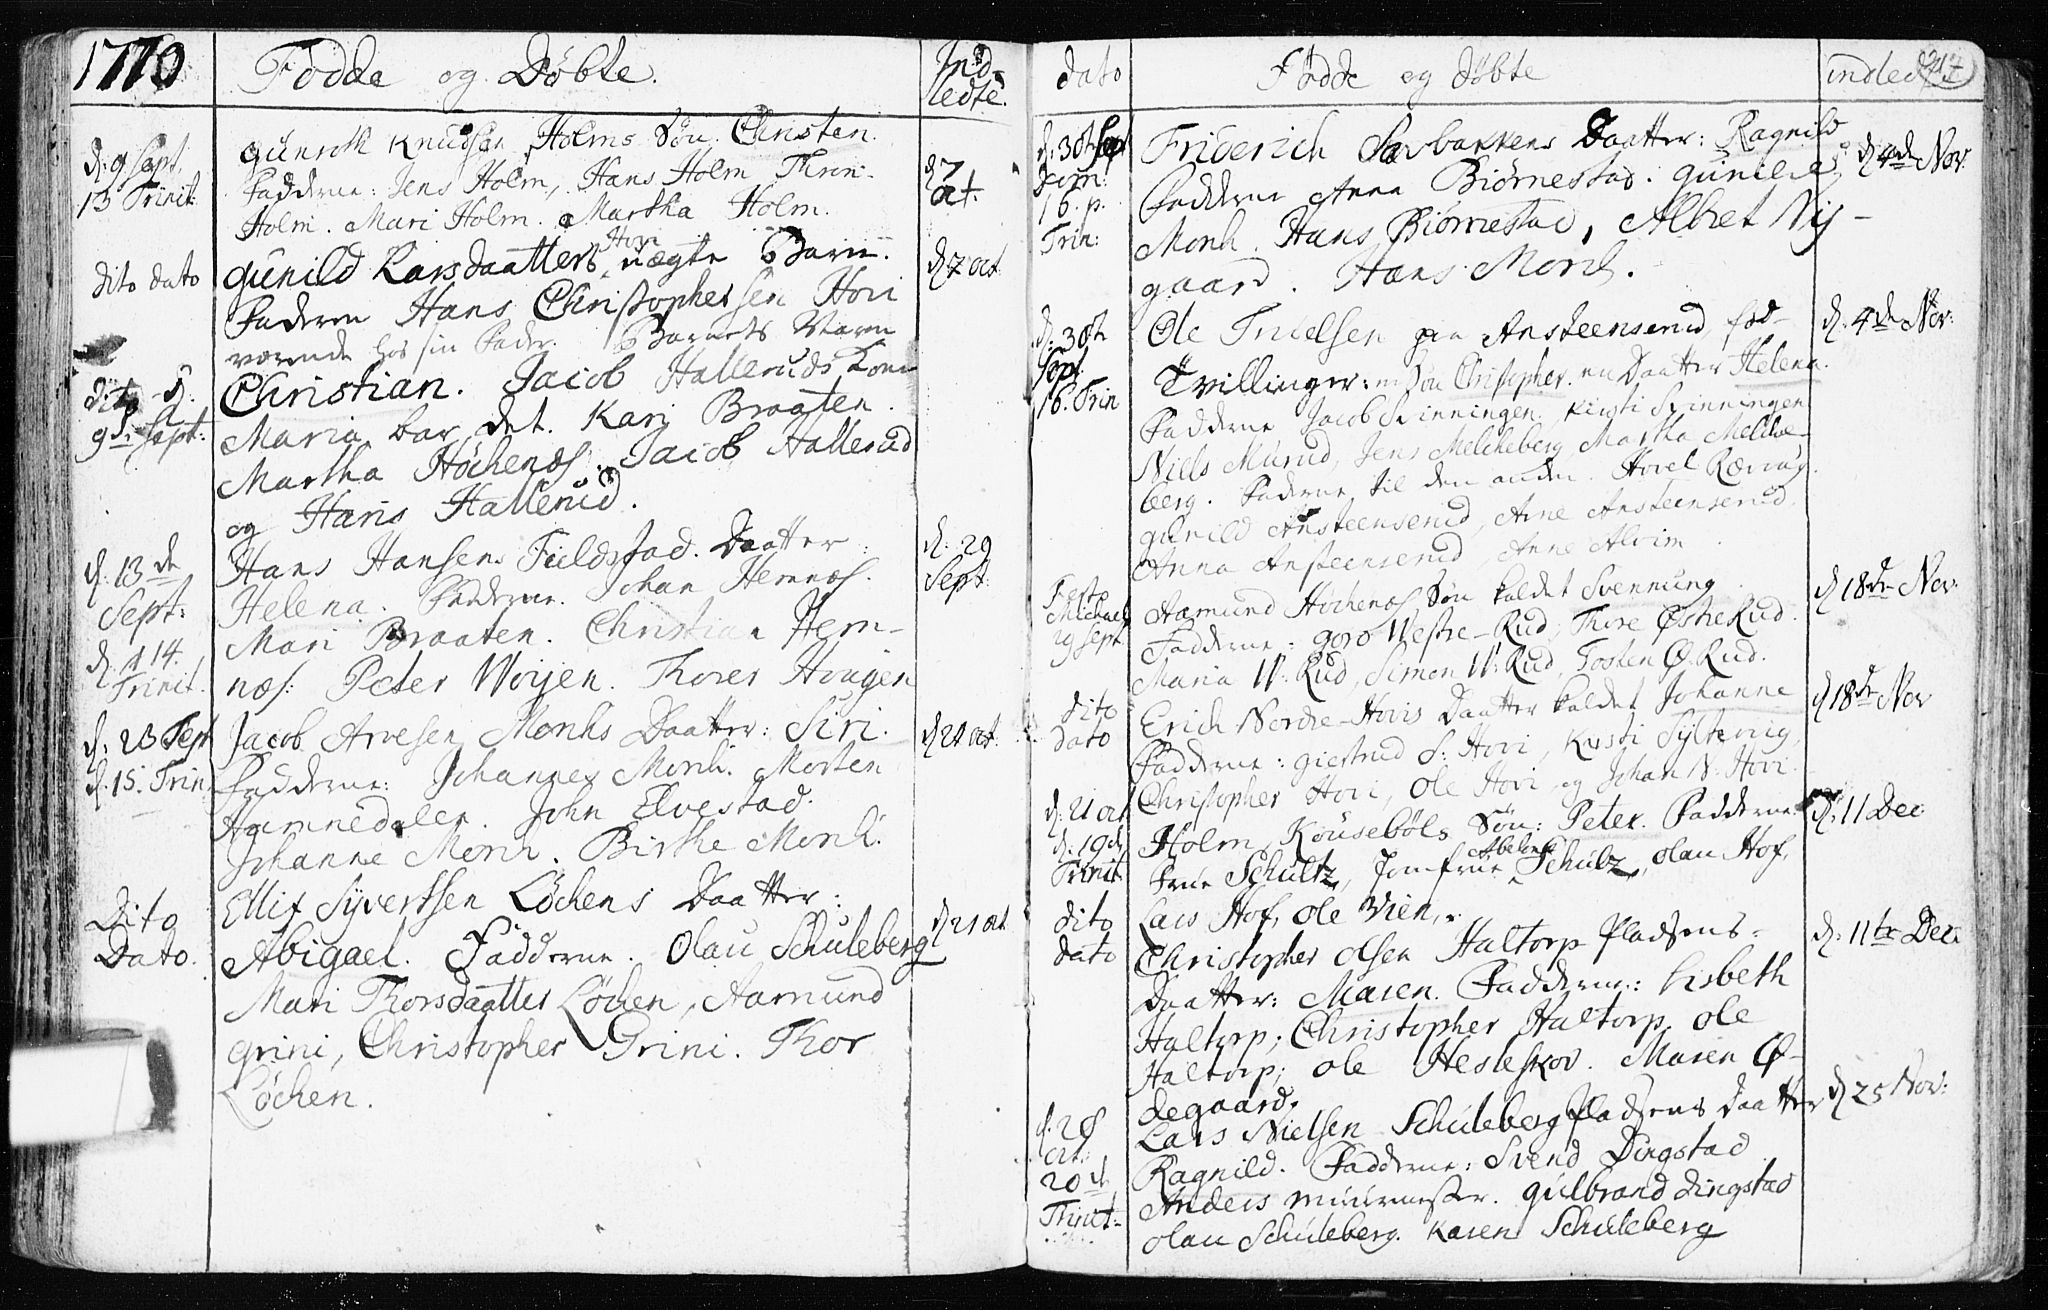 1770
Fødde og Døbte.
Ind-
ledte.
d: 9 Sept.
13 Trinit:
Gunroth Knudsen Holms Søn Christen.
Fadderne: Jens Holm, Hans Holm Thron
Holm. Mari Holm. Martha Holm.
d 7
oct.
dito dato
Gunild Larsdaatters Hovi uægte Barn.
Faderen Hans Christophersen Hovi
værende hos sin Fader. Barnets Navn
d 7 oct
dito d.
9de Sept:
Christian. Jacob Halleruds Kone
Maria bar det. Kari Braaten.
Martha Höchenæs. Jacob Hallerud
og Hans Hallerud.
d. 13de
Sept:
d. 14.
Trinit.
Hans Hansens Fuldstad. Daatter:
Helena. Fadderne. Johan Hemnæs.
Mari Braaten. Christian Hem-
næs: Peter Woyen. Thorer Hougen
d. 29
Sept:
d. 23 Sept
d. 15. Trin
Jacob Arvesen Monks Daatter: Siri.
Fadderne: Johannes Monk. Morten
Hamnedalen. John Elvestad.
Johanne Monk. Birthe Monk.
d 21 oct.
Dito
Dato.
Ellif Syvertsen Löchens Daatter:
Abigael. Fadderne. Olau Schuleberg
Mari Thorsdaatter Löchen, Aamund
Grini, Christopher Grini. Thor
Löchen.
d 21 oct
dato
Fødde og døbte
indledte
d. 30te Sept
Dom:
16. p.
Trin:
Friderich Savbakkens Daatter: Ragnild
Fadderne Anna Biørnestad. Gunild
Monk. Hans Biørnestad, Albret Ny-
gaard. Hans Monk.
d 4de Nov.
d. 30te
Sept.
16. Trin
Ole Troelsen paa Ansteensrud, fød-
Tvillinger: en Søn Christopher. en Daatter Helena.
Fadderne Jacob Skinningen, Kirsti Skinningen
Niels Murud, Jens Melcheberg Martha Melche-
berg. Faderne til den anden. Hovel
Gunild Ansteenserud, Arne Ansteenserud.
Anna Ansteenserud, Anne Alvim.
d. 4de Nov:
Festo
Michael
29 Sept.
Aamund Höchenæs Søn kaldet Svennung.
Fadderne: Goro Westre-Rud, Thore ØstreRud.
Maria W: Rud, Simon W: Rud, Tosten Ø. Rud.
d 18de Nov
dito
dato
Erich Nordre-Hovis Daatter kaldet Johanne
Fadderne: Giertrud S: Hovi, Kirsti Sylterig,
Christopher Hovi, Ole Hovi, og Johan N: Hovi.
d 18de Nov
d: 21 oct
d. 19de
Trinit
Holm Kousebøls Søn: Peter. Fadderne.
Frue Schultz, Jomfrue Abelone Schultz, olau Hof,
Lars Hof, Ole Vien,
d. 11 Dec
dito
dato
Christopher Olsen Haltorp Pladsens-
Daatter: Maren. Fadderne: Lisbeth
Haltorp; Christopher Haltorp, Ole
Haltorp; Ole Hesleskov. Maren Ø-
degaard.
d. 11te Dec:
d. 28
Oct:
20de
Trinit:
Lars Nielsen Schuleberg Pladsens Daatter
Ragnild. Fadderne: Svend Dingstad
Anders Muurmester. Gulbrand Dingstad
Olau Schuleberg. Karen Schuleberg
d 25 Nov: